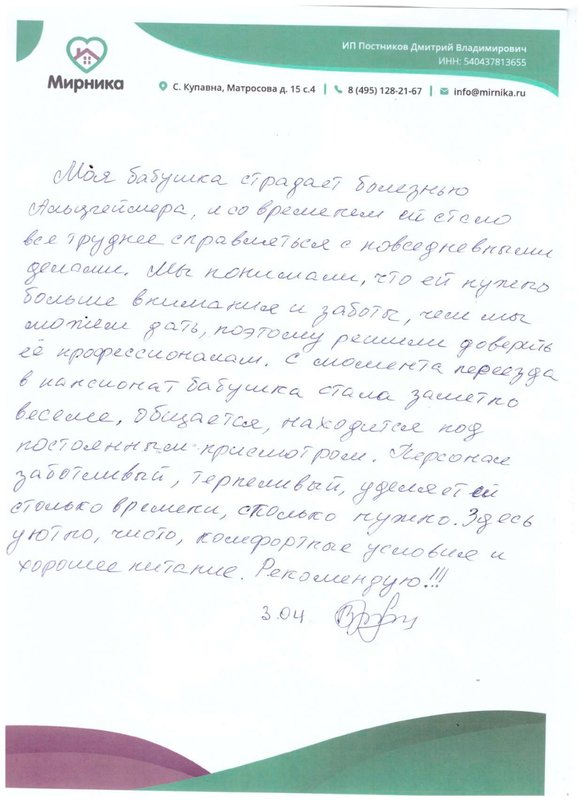 ИП Постников Дмитрий Владимирович
ИНН: 540437813655
Мирника
С. Купавна, Матросова д. 15 с.4 | 8 (495) 128-21-67 | info@mirnika.ru
Моя бабушка страдает болезнью
Альцгеймера, и со временем ей стало
все труднее справляться с повседневными
делами. Мы понимали, что ей нужно
больше внимания и заботы, чем мы
можем дать, поэтому решили доверить
её профессионалам. С момента переезда
в пансионат бабушка стала заметно
веселее, общается, находится под
постоянным присмотром. Персонал
заботливый, терпеливый, уделяет ей
столько времени, сколько нужно. Здесь
уютно, чисто, комфортные условия и
хорошее питание. Рекомендую!!!
3.04